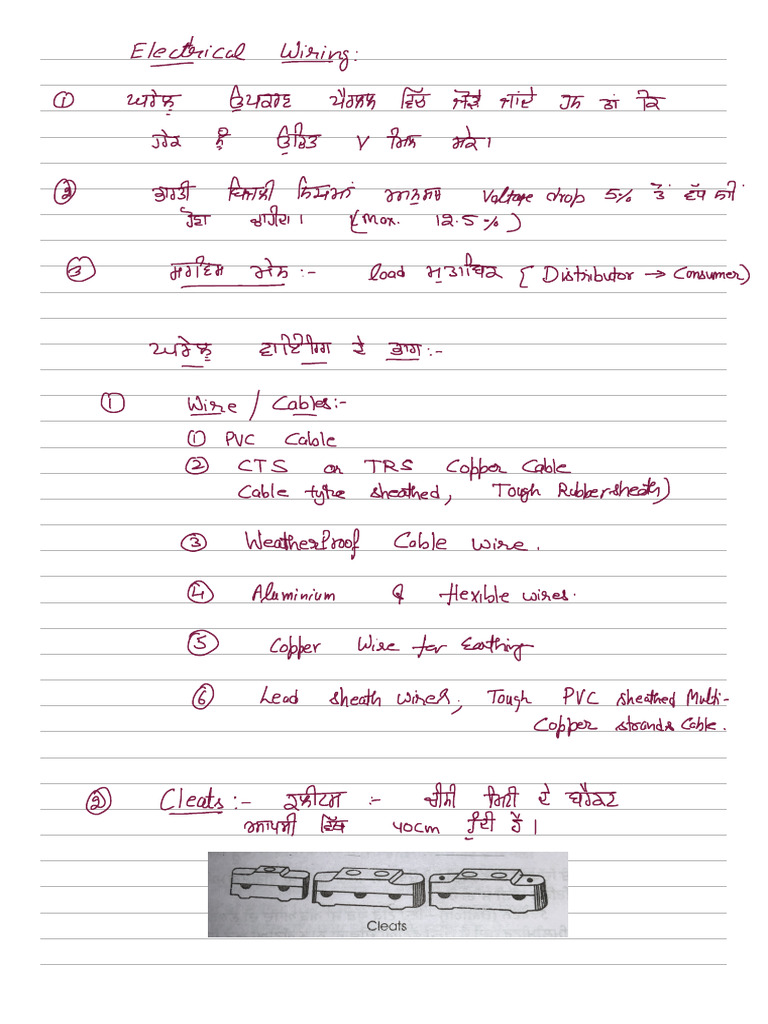 Electrical Wiring:
① ਘਰੇਲੂ ਉਪਕਰਣ ਪੈਰਲਲ ਵਿੱਚ ਜੋੜੇ ਜਾਂਦੇ ਹਨ ਤਾਂ ਕਿ
ਹਰੇਕ ਨੂੰ ਉਚਿਤ V ਮਿਲ ਸਕੇ।
② ਭਾਰਤੀ ਬਿਜਲੀ ਨਿਯਮਾਂ ਅਨੁਸਾਰ Voltage drop 5% ਤੋਂ ਵੱਧ ਨਹੀਂ
ਹੋਣਾ ਚਾਹੀਦਾ। (Max. 12.5%)
③ ਸਰਵਿਸ ਮੇਨ :- load ਮੁਤਾਬਿਕ [Distributor → Consumer)
ਘਰੇਲੂ ਵਾਇਰਿੰਗ ਦੇ ਭਾਗ :-
① Wire / Cables:-
① PVC Cable
② CTS or TRS Copper Cable
Cable tytre sheathed, Tough Rubber sheath)
③ Weatherproof Cable wire.
④ Aluminium & flexible wires.
⑤ Copper Wire for Earthing
⑥ Lead sheath wires, Tough PVC sheathed Multi-
Copper strands Cable.
② Cleats :- ਕਲੀਟਸ :- ਚੀਨੀ ਮਿੱਟੀ ਦੇ ਬਰੈਕਟ
ਆਪਸੀ ਵਿੱਥ 40cm ਹੁੰਦੀ ਹੈ।
Cleats